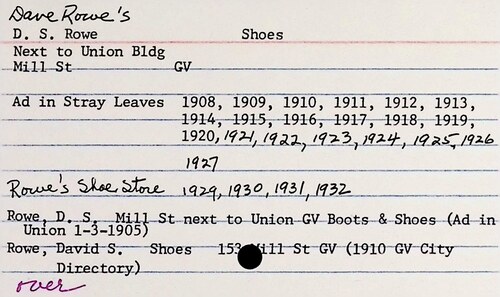 Dave Rowe's
D. S. Rowe Shoes
Next to Union Bldg
Mill St GV
Ad in Stray Leaves 1908, 1909, 1910, 1911, 1912, 1913,
1914, 1915, 1916, 1917, 1918, 1919,
1920, 1921, 1922, 1923, 1924, 1925, 1926
1927
Rowe's Shoe Store 1929, 1930, 1931, 1932
Rowe, D. S. Mill St next to Union GV Boots & Shoes (Ad in
Union 1-3-1905)
Rowe, David S. Shoes 153 Mill St GV (1910 GV City
Directory)
over